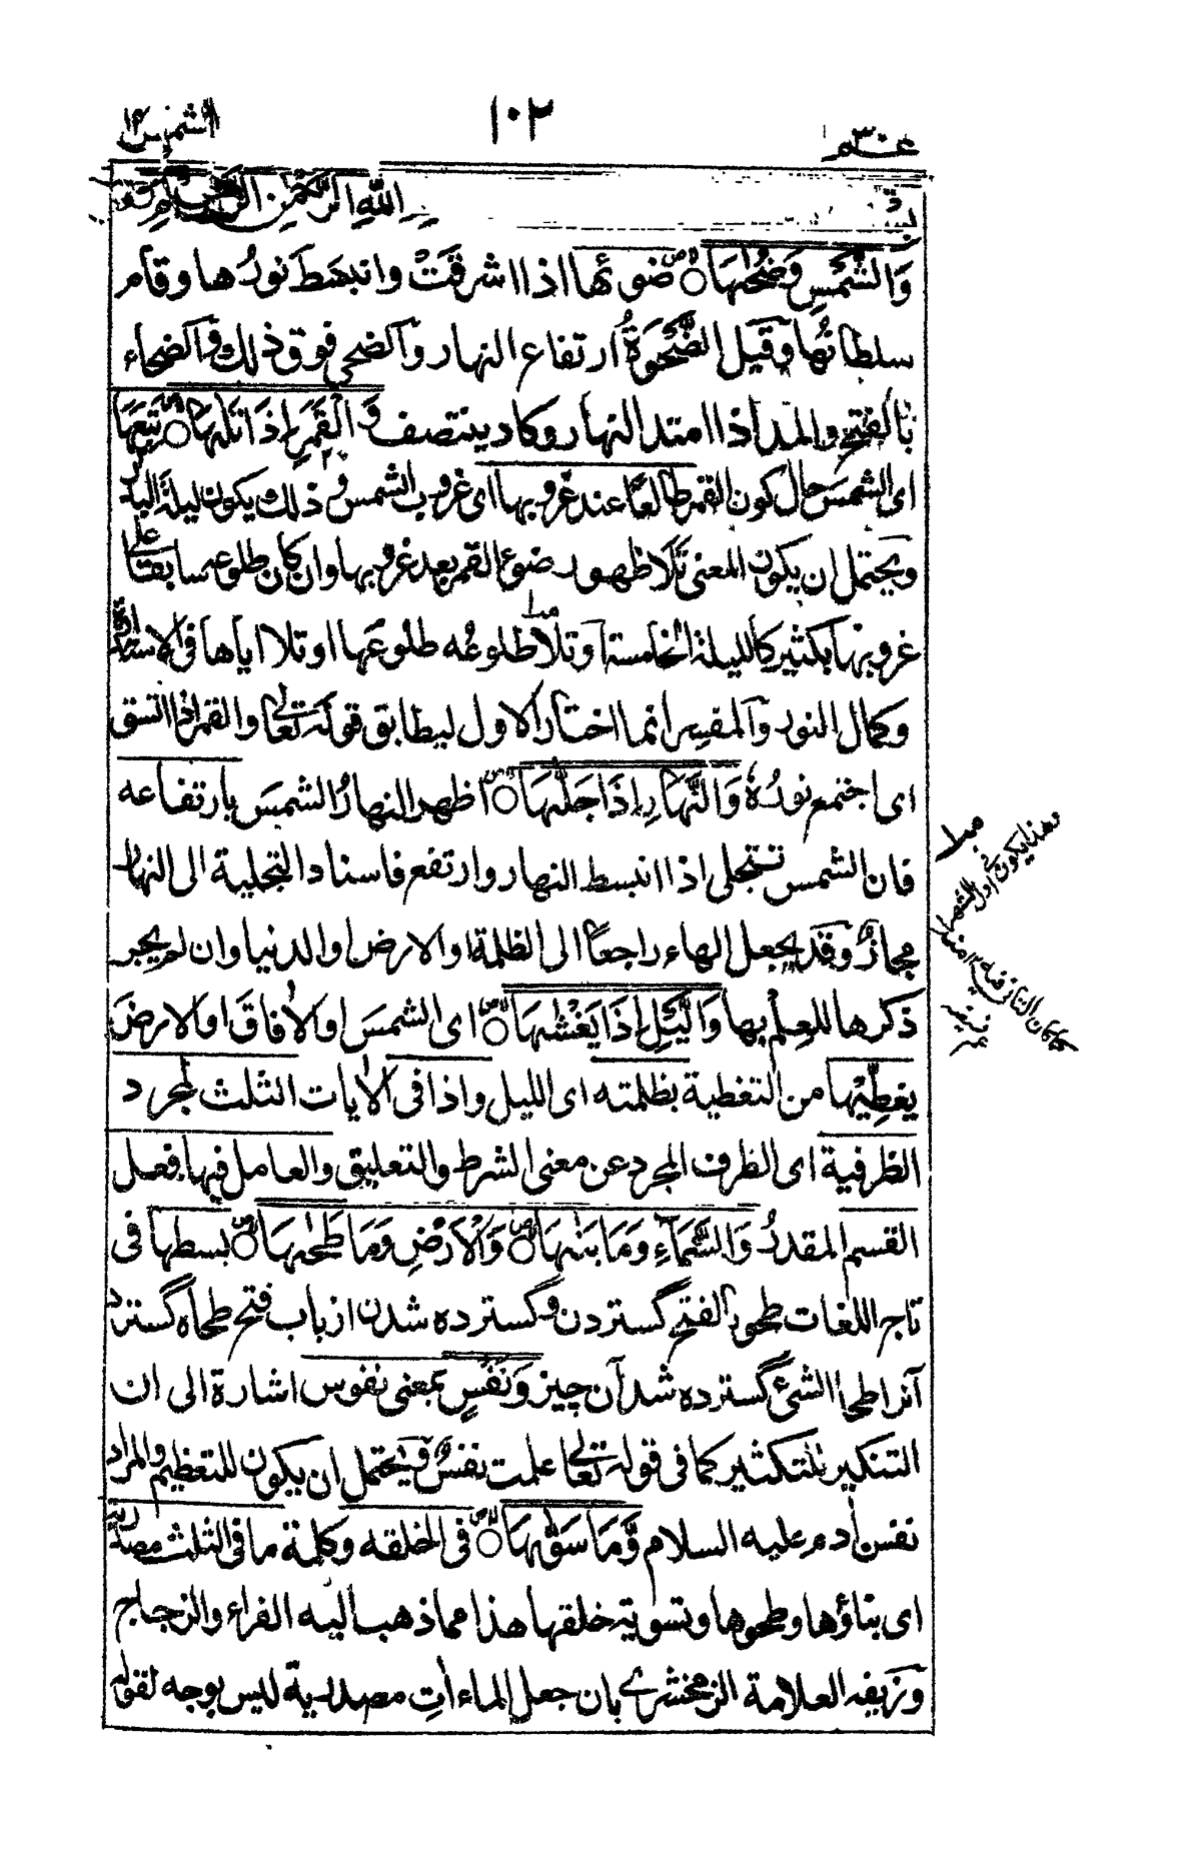 الشمس
١٠٢
عم ٣٠
بسم الله الرحمن الرحيم
وَالشَّمْسِ وَضُحٰىهَا ضوئها اذا اشرقت وانبسط نورها وقام
سلطانها وقيل الضَّحْوَةُ ارتفاع النهار والضحى فوق ذلك والضحاء
بالفتح والمد اذا امتد النهار وكاد ينتصف وَالْقَمَرِ اِذَا تَلٰىهَا تبعها
اى الشمس حال كون القمر طالعا عند غروبها اى غروب الشمس وذلك يكون ليلة البدر
ويحتمل ان يكون المعنى تلا ظهور ضوء القمر بعد غروبها وان كان طلوعه سابقا على
غروبها بكثير كالليلة الخامسة او تلا طلوعُه طلوعَها او تلا اياها فى الاستدارة
وكمال النور والمفسر انما اختار الاول ليطابق قوله تعالى والقمر اذا اتسق
اى اجتمع نورُهٗ وَالنَّهَارِ اِذَا جَلّٰىهَا اظهر النهارُ الشمسَ بارتفاعه
فان الشمس تتجلى اذا انبسط النهار وارتفع فاسناد التجلية الى النهار
مجاز وقد يجعل الهاء راجعًا الى الظلمة او الارض او الدنيا وان لم يجر
ذكرها للعلم بها وَالَّيْلِ اِذَا يَغْشٰىهَا اى الشمسَ او الاٰفاقَ او الارضَ
يغطيها من التغطية بظلمته اى الليل واذا فى الاٰيات الثلث لمجرد
الظرفية اى الظرف المجرد عن معنى الشرط والتعليق والعامل فيها فعل
القسم المقدرُ وَالسَّمَآءِ وَمَا بَنٰىهَا وَالْاَرْضِ وَمَا طَحٰىهَا بسطها فى
تاج اللغات طحو بالفتح گستردن وگسترده شدن از باب فتح طحاه گسترد
آنرا طحا الشئ گسترده شد آن چيز وَنَفْسٍ بمعنى نفوس اشارة الى ان
التنكير للتكثير كما فى قوله تعالى علمت نفسٌ ويحتمل ان يكون للتعظيم والمراد
نفس اٰدم عليه السلام وَّمَا سَوّٰىهَا فى الخلقه وكلمة ما فى الثلث مصدرية
اى بناؤها وطحوها وتسوية خلقها هذا مما ذهب اليه الفراء والزجاج
وزيفه العلامة الزمخشرى بان جعل الماءات مصدرية ليس بوجه لقوله